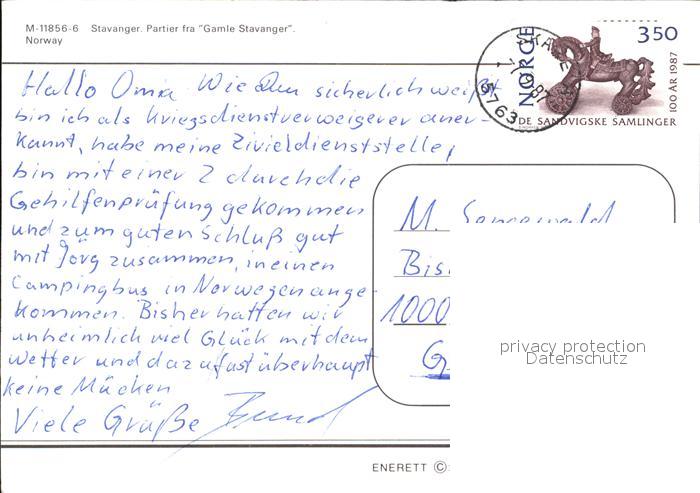 M-11856-6 Stavanger. Partier fra "Gamle Stavanger".
Norway
NORGE
350
100 ÅR 1987
DE SANDVIGSKE SAMLINGER
6763
Hallo Oma Wie Du sicherlich weißt
bin ich als Kriegsdienstverweigerer aner-
kannt, habe meine Zivieldienststelle,
bin mit einer 2 durch die
Gehilfenprüfung gekommen
und zum guten Schluß gut
mit Jörg zusammen, in einen
Campingbus in Norwegen ange-
kommen. Bisher hatten wir
unheimlich viel Glück mit dem
Wetter und dazu fast überhaupt
keine Mücken
Viele Grüße
M.
Bis
1000
G
privacy protection
Datenschutz
ENERETT ©: